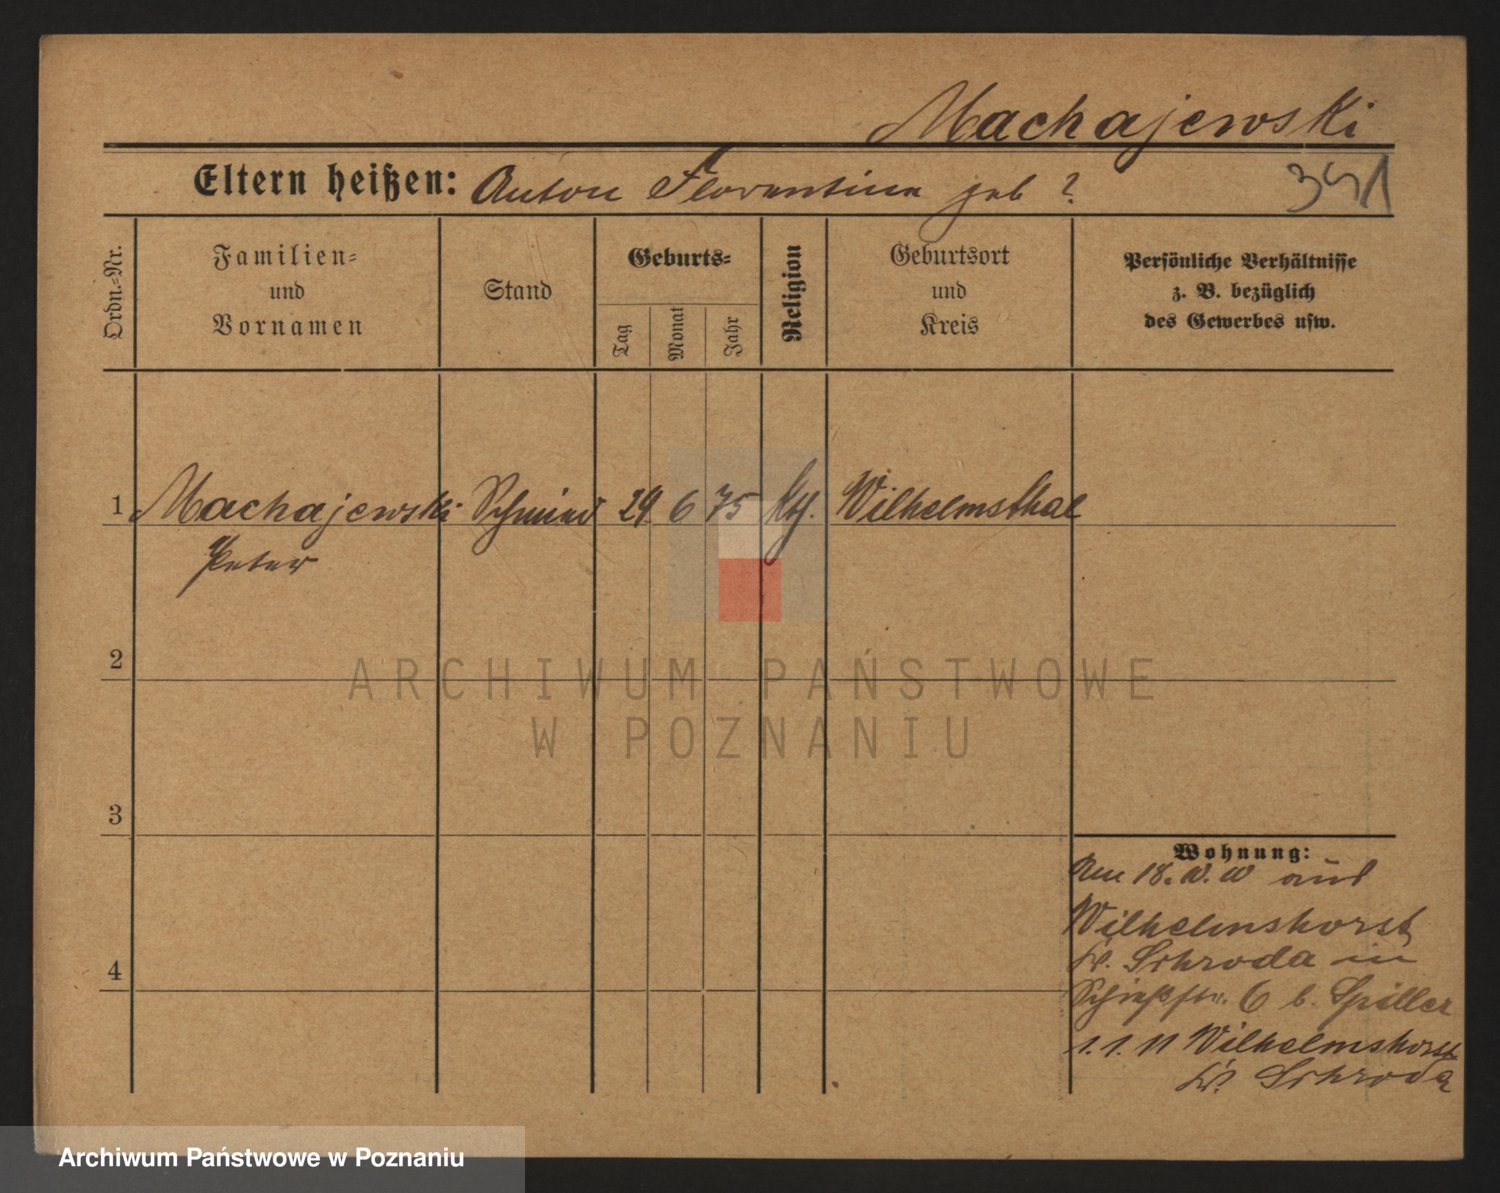 Machajewski
Eltern heißen: Anton Florentine geb ?
351
Ordn.-Nr.
Familien-
und
Vornamen
Stand
Geburts-
Tag
Monat
Jahr
Religion
Geburtsort
und
Kreis
Persönliche Verhältnisse
z. B. bezüglich
des Gewerbes usw.
1 Machajewski Schmied 29 6 75 kth. Wilhelmsthal
Peter
2
ARCHIWUM PAŃSTWOWE
W POZNANIU
3
Wohnung:
Am 18. 10. 10 aus
Wilhelmshorst
Kr. Schroda in
Schießstr. 6 b. Spiller
4
1.1.11 Wilhelmshorst
Kr. Schroda
Archiwum Państwowe w Poznaniu